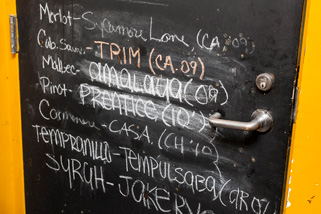 Merlot - Sycamore Lane (CA. 09)
Cab. Sauv. - TRIM (CA. 09)
Malbec - amalaya (09)
Pinot - PRENTICE (10')
CASA (CH. 10')
TEMPRANILLO - TEMPULSAEA (CAR 07
SYRAH - JOKER